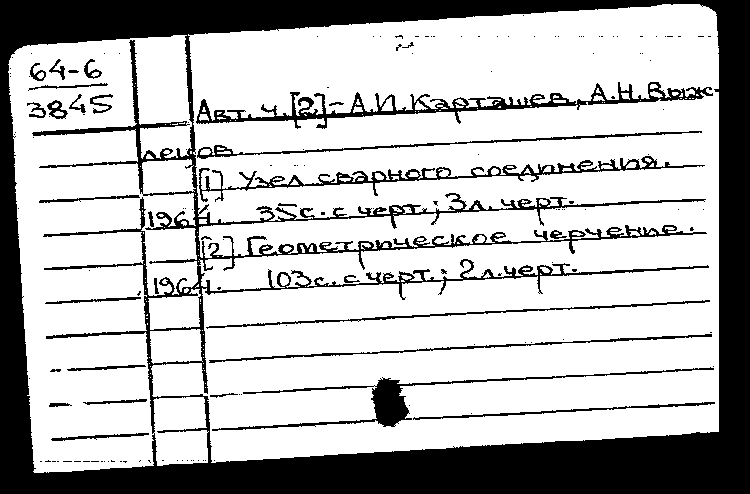 64-6
3845
Авт. ч. [2] - А.И. Карташев, А.Н. Выж-
лецов.
[1]. Узел сварного соединения.
1964. 35с. с черт.; 3л. черт.
[2]. Геометрическое черчение.
1964. 103с. с черт.; 2л. черт.